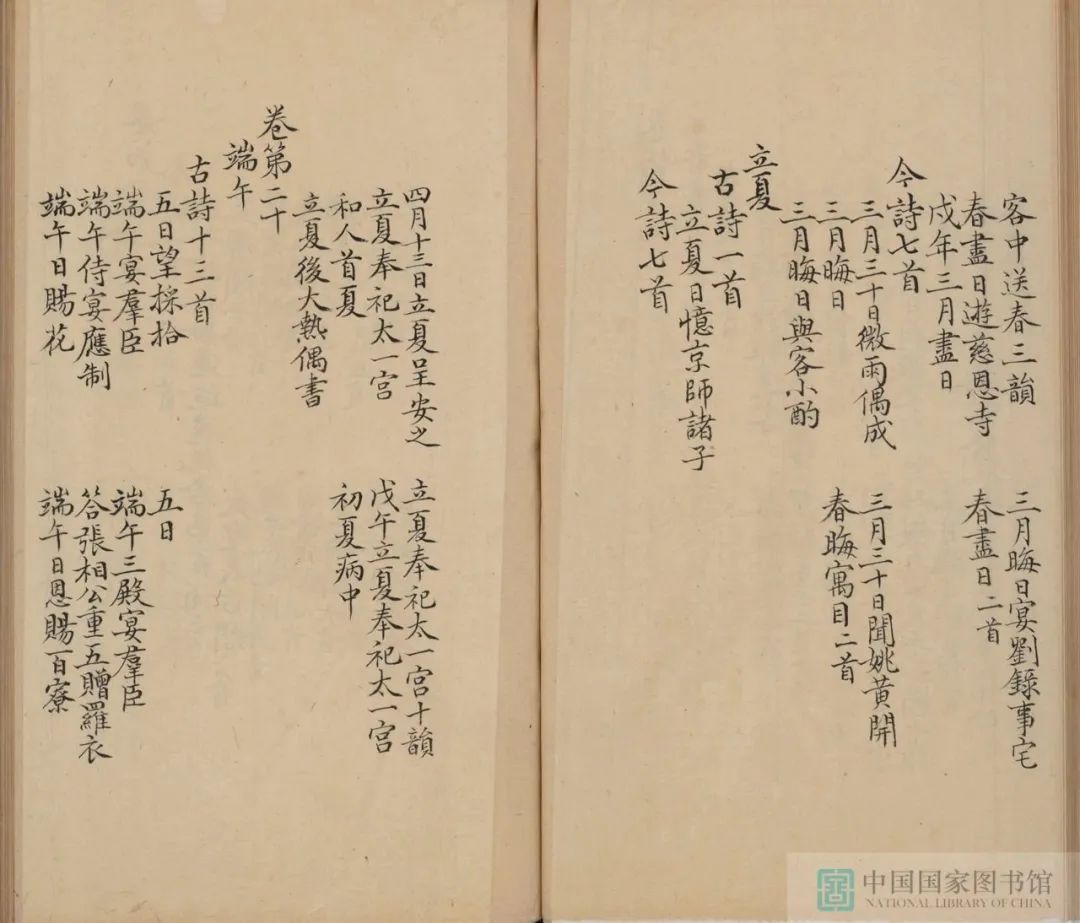 客中送春三韻　三月晦日宴劉錄事宅
春盡日遊慈恩寺　春盡日二首
戊年三月盡日
今詩七首
三月三十日微雨偶成　三月三十日聞姚黃開
三月晦日　春晦寓目二首
三月晦日與客小酌
立夏
古詩一首
立夏日憶京師諸子
今詩七首
四月十三日立夏呈安之　立夏奉祀太一宮十韻
立夏奉祀太一宮　戊午立夏奉祀太一宮
和人首夏　初夏病中
立夏後大熱偶書
卷第二十
端午
古詩十三首
五日望採拾　五日
端午宴羣臣　端午三殿宴羣臣
端午侍宴應制　荅張相公重五贈羅衣
端午日賜花　端午日恩賜百寮
中国国家图书馆
NATIONAL LIBRARY OF CHINA